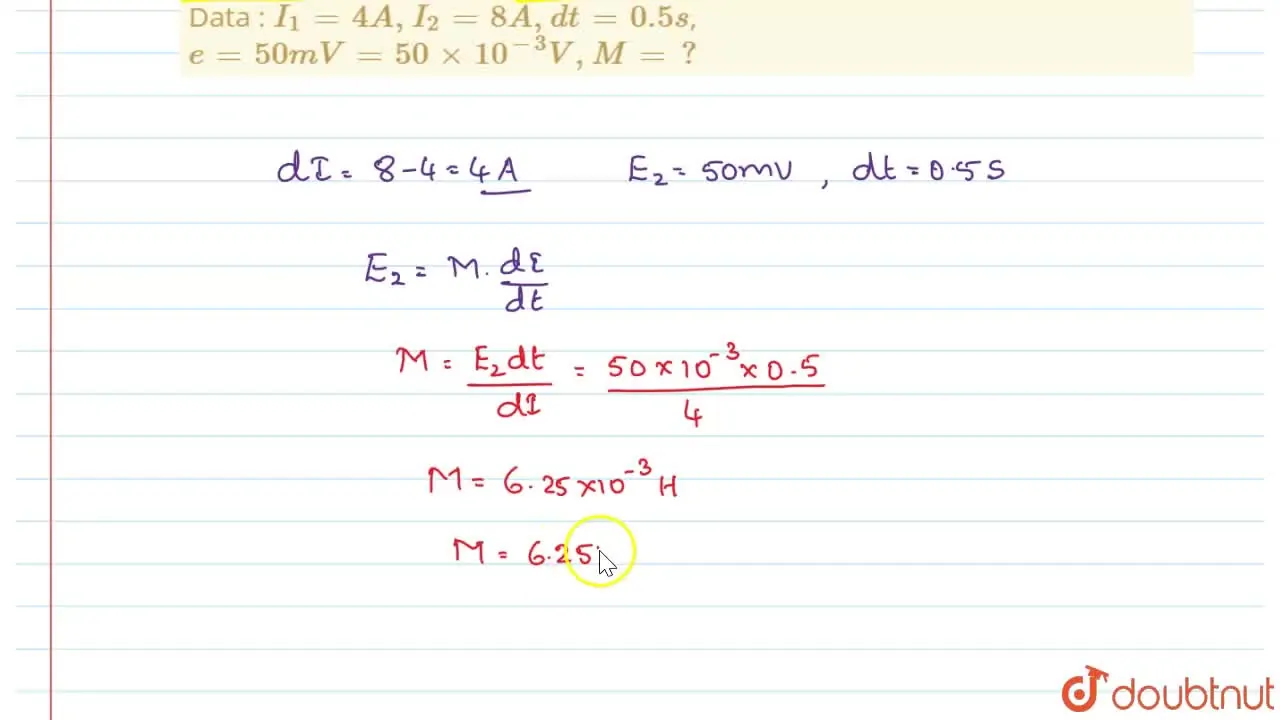 Data : I₁ = 4A, I₂ = 8A, dt = 0.5s,
e = 50mV = 50 × 10⁻³V, M = ?
dI = 8-4 = 4A E₂ = 50mV , dt = 0.5 S
E₂ = M. dI/dt
M = E₂dt/dI = 50×10⁻³×0.5/4
M = 6.25×10⁻³ H
M = 6.25
doubtnut